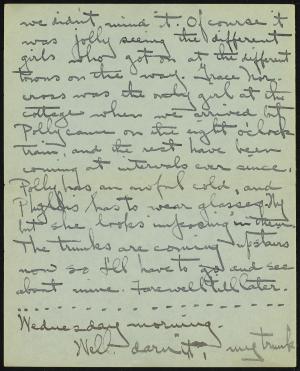 we didn't, mind it. Of course it
was jolly seeing the different
girls who got on at the different
towns on the way. Grace Nor-
cross was the only girl at the
cottage when we arrived but
Polly came on the eight o'clock
train, and the rest have been
coming at intervals ever since.
Polly has an awful cold, and
Phyllis has to wear glasses. My
but she looks imposing in them.
The trunks are coming upstairs
now so I'll have to go and see
about mine. Farewell till later.
Wednesday morning.
Well darn it, my trunk